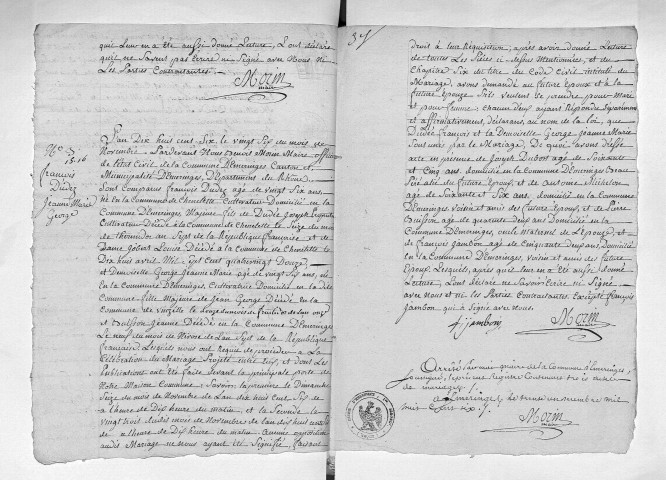 qui leur en a été aussi donné Lecture, L'ont déclaré
ne Savoir pas Ecrire ne Signé avec Nous ni
Les Parties Contractantes.
Morin
maire
No 3
1516
françois
Dudez
Jeanne Marie
George
L'an Dix huit cent Six, le vingt Six du mois de
Novembre Pardevant Nous Morin Maire officier
de l'état Civil de la Commune D'Emeringes Canton et
Municipalité D'Emeringes, Département du Rhône
Sont Comparus François Dudez agé de vingt Six ans,
né En la Commune de Chenelette Cultivateur Domicilié en la
Commune D'Emeringes, Majeur fils de Dudez Joseph
Cultivateur Décédé à la Commune de Chenelette le Seize du mois
de thermidor an Sept de la République française et de
Dame Louise Décédé à la Commune de Chenelette le
Dix huit avril Mil Sept cent quatrevingt Douze,
et Demoiselle George Jeanne Marie agé de vingt Six ans, née
En la Commune D'Emeringes, Cultivatrice Domiciliée en la dite
Commune fille Majeure de Jean George Décédé en la
Commune de le douze du mois de fructidor
et Jeanne Décédé en la Commune D'Emeringes
Le neuf du mois de Nivose de L'an Sept de la République
française, Lesquels nous ont Requis de procéder à La
Célébration du Mariage Projeté entre Eux, et dont Les
Publications ont été faites devant la principale porte
de Notre Maison Commune; Savoir la première le Dimanche
Seize du mois de Novembre de L'an dix huit Cent Six
à l'heure de Dix heure du matin et la Seconde le
vingt trois dudit mois de Novembre de L'an dix huit cent Six
à l'heure de Dix heure du matin. Aucune opposition
audit Mariage ne nous ayant été Signifié, faisant
37
droit à leur Réquisition, après avoir donné Lecture
de toutes Les Pièces ci dessus Mentionnées, et du
Chapitre Six du titre du Code Civil intitulé du
Mariage, avons demandé au futur Epoux et à la
future Epouse s'ils veulent se prendre pour Mari
et pour femme; chacun d'eux ayant Répondu Séparément
et affirmativement, déclarons, au nom de la loi, que
Dudez François et la Demoiselle George Jeanne Marie
Sont unis par le Mariage, De quoi avons dressé
acte en présence de Joseph Dubost agé de Soixante
et Cinq ans domicilié en la Commune D'Emeringes
du futur Epoux, et de antoine
agé de Soixante et Six ans, domicilié en la Commune
D'Emeringes voisin et ami des future Epoux, et de Pierre
Buisson agé de quarante deux ans Domicilié en la
Commune D'Emeringes, oncle maternel de l'Epouse, et
de françois Jambon agé de Cinquante deux ans, Domicilié
en la Commune D'Emeringes, voisin et amis des future
Epoux. Lesquels, après qu'il leur en a été aussi donné
Lecture, L'ont déclaré ne Savoir Ecrire ni Signé
avec Nous et ni les Parties Contractantes Excepté françois
Jambon qui a Signé avec nous.
f. jambon
Morin
maire
Arrêté par moi maire de la Commune d'Emeringes,
le présent Registre Contenant actes
de mariages.
à Emeringes, le trente un décembre mil
huit Cent Six
Morin